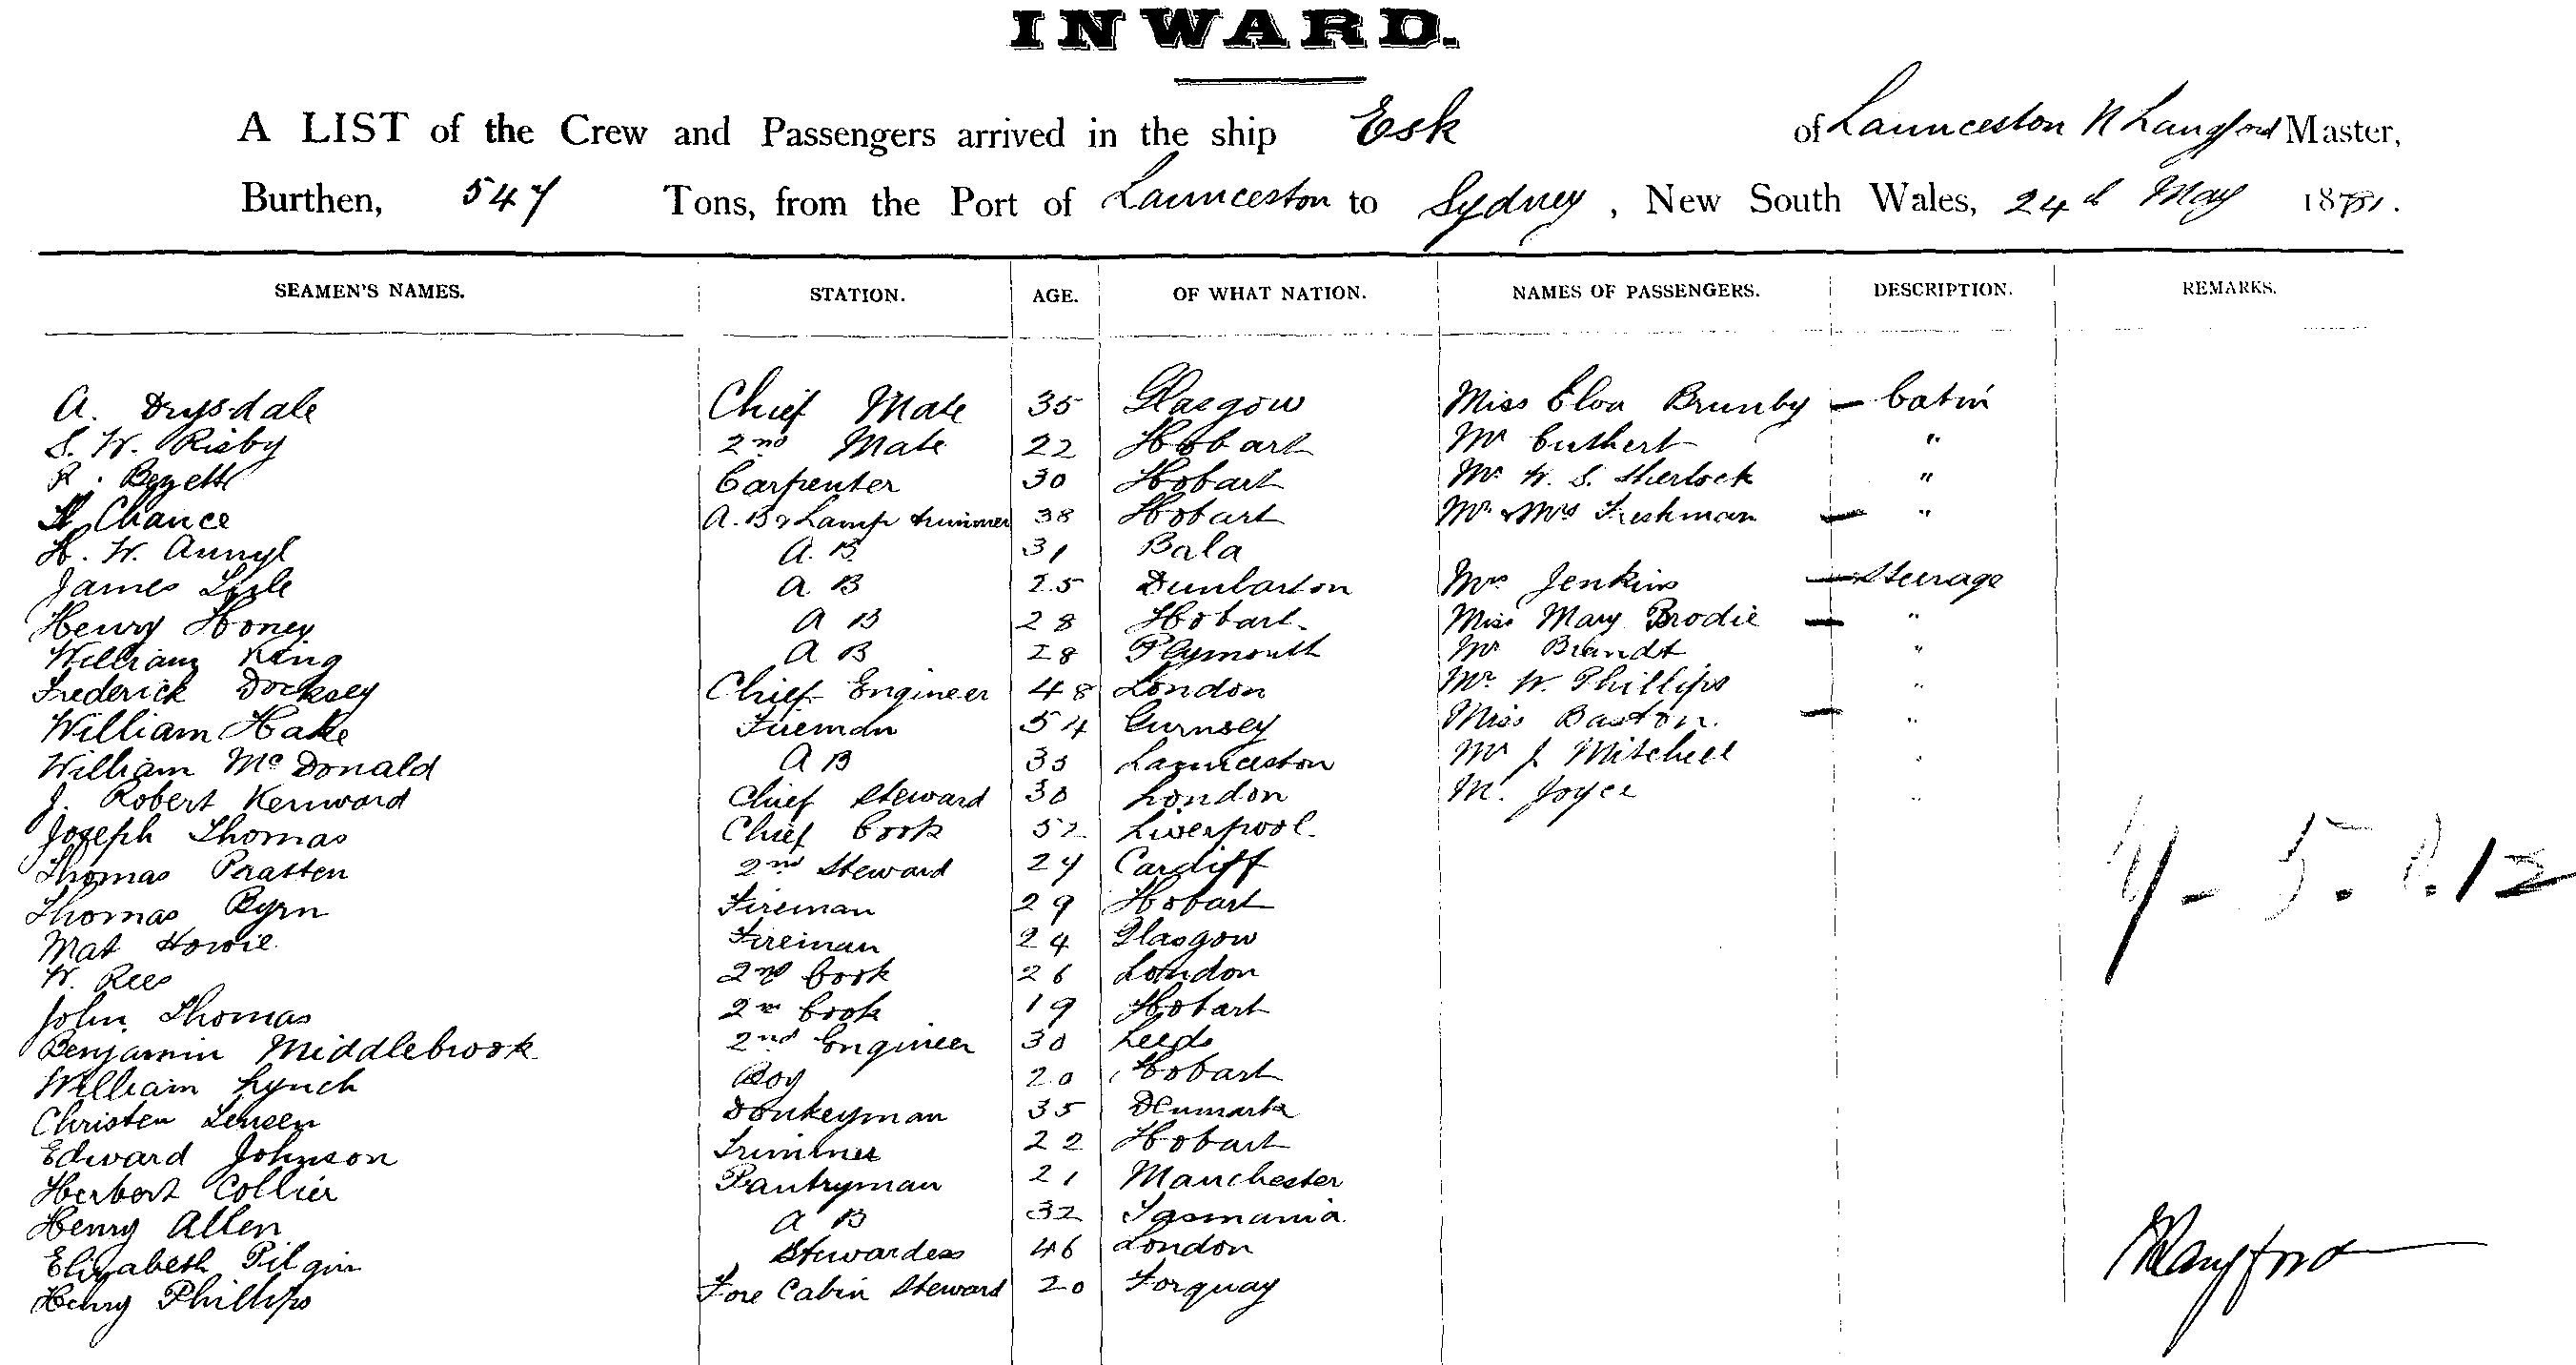 INWARD.
A LIST of the Crew and Passengers arrived in the ship Esk of Launceston N Langford Master,
Burthen, 547 Tons, from the Port of Launceston to Sydney, New South Wales, 24th May 1881.
SEAMEN'S NAMES. STATION. AGE. OF WHAT NATION. NAMES OF PASSENGERS. DESCRIPTION. REMARKS.
A. Drysdale Chief Mate 35 Glasgow Miss Eloa Brumby — Cabin
S. W. Risby 2nd Mate 22 Hobart Mr Cuthert "
R. Bezette Carpenter 30 Hobart Mr. W. S. Sherlock "
Chance A.B & Lamp trimmer 38 Hobart Mr & Mrs Freshman — "
H. W. A.B 31 Bala
James Lisle A B 25 Dunbarton Mrs Jenkins — Steerage
Henry Honey A B 28 Hobart. Miss Mary Brodie — "
William King A B 28 Plymouth Mr Brandt "
Frederick Docksey Chief Engineer 48 London Mr. W. Phillips "
William Hake Fireman 54 Gurnsey Miss Baston. — "
William McDonald A B 33 Launceston Mr J Mitchell "
J. Robert Kenward Chief Steward 30 London M. Joyce "
Joseph Thomas Chief Cook 52 Liverpool.
Thomas Pratten 2nd Steward 24 Cardiff
Thomas Byrn Fireman 29 Hobart
Mat Howie Fireman 24 Glasgow
W. Rees 2nd Cook 26 London
John Thomas 2nd Cook 19 Hobart
Benjamin Middlebrook 2nd Engineer 30 Leeds
William Lynch Boy 20 Hobart
Christen Jensen Donkeyman 35 Denmark
Edward Johnson Trimmer 22 Hobart
Herbert Collier Pantryman 21 Manchester
Henry Allen A B 32 Tasmania
Elizabeth Pilgim Stewardess 46 London
Henry Phillips Fore Cabin Steward 20 Torquay
NLangford